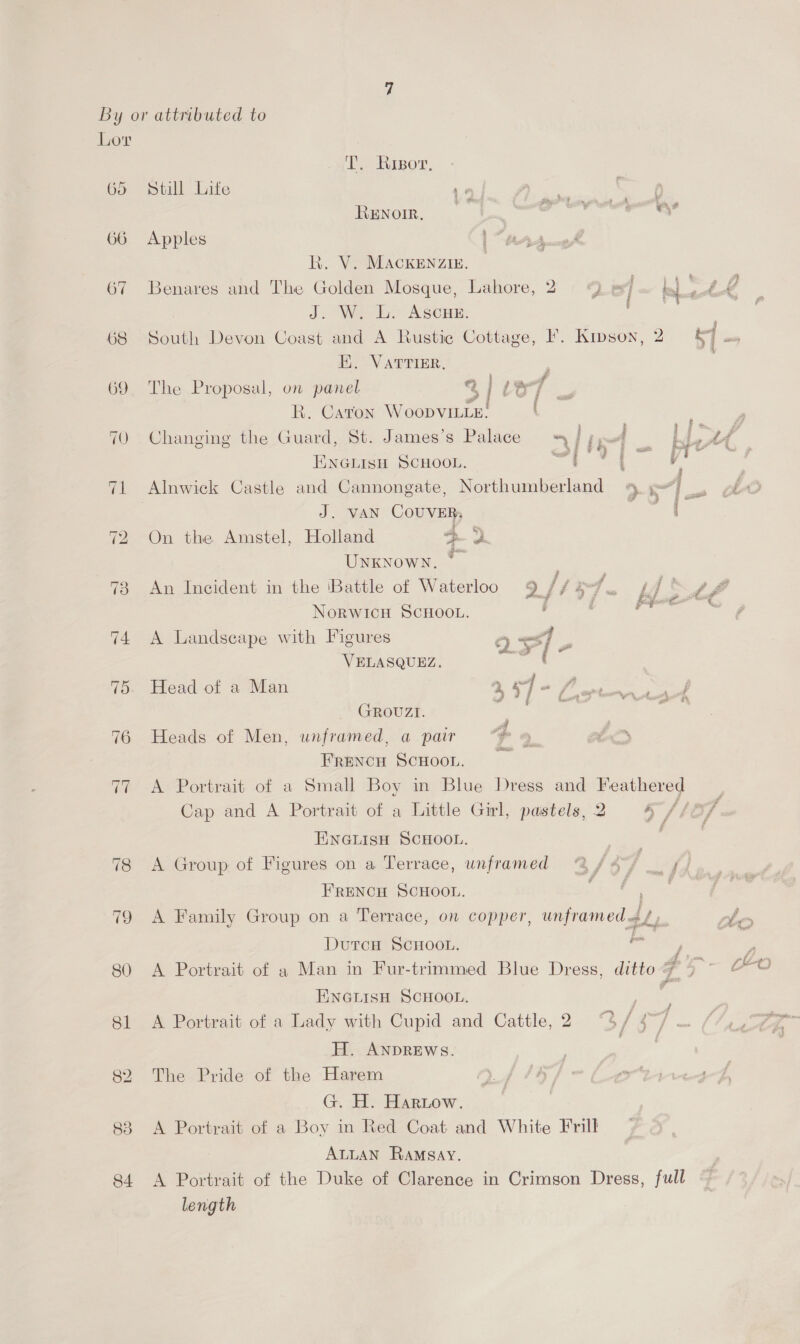 7
By or attributed to
Lot
T. RIBOT.
65 Still Life
RENOIR.
66 Apples
R. V. MACKENZIE.
67 Benares and The Golden Mosque, Lahore, 2
J. W. L. ASCHE.
68 South Devon Coast and A Rustic Cottage, F. KIPSON, 2
E. VATTIER.
69 The Proposal, on panel
R. CATON WOODVILLE.
70 Changing the Guard, St. James's Palace
ENGLISH SCHOOL.
71 Alnwick Castle and Cannongate, Northumberland
J. VAN COUVER.
72 On the Amstel, Holland
UNKNOWN.
73 An Incident in the Battle of Waterloo
NORWICH SCHOOL.
74 A Landscape with Figures
VELASQUEZ.
75 Head of a Man
GROUZI.
76 Heads of Men, unframed, a pair
FRENCH SCHOOL.
77 A Portrait of a Small Boy in Blue Dress and Feathered
Cap and A Portrait of a Little Girl, pastels, 2
ENGLISH SCHOOL.
78 A Group of Figures on a Terrace, unframed
FRENCH SCHOOL.
79 A Family Group on a Terrace, on copper, unframed
DUTCH SCHOOL.
80 A Portrait of a Man in Fur-trimmed Blue Dress, ditto
ENGLISH SCHOOL.
81 A Portrait of a Lady with Cupid and Cattle, 2
H. ANDREWS.
82 The Pride of the Harem
G. H. HARLOW.
83 A Portrait of a Boy in Red Coat and White Frill
ALLAN RAMSAY.
84 A Portrait of the Duke of Clarence in Crimson Dress, full
length